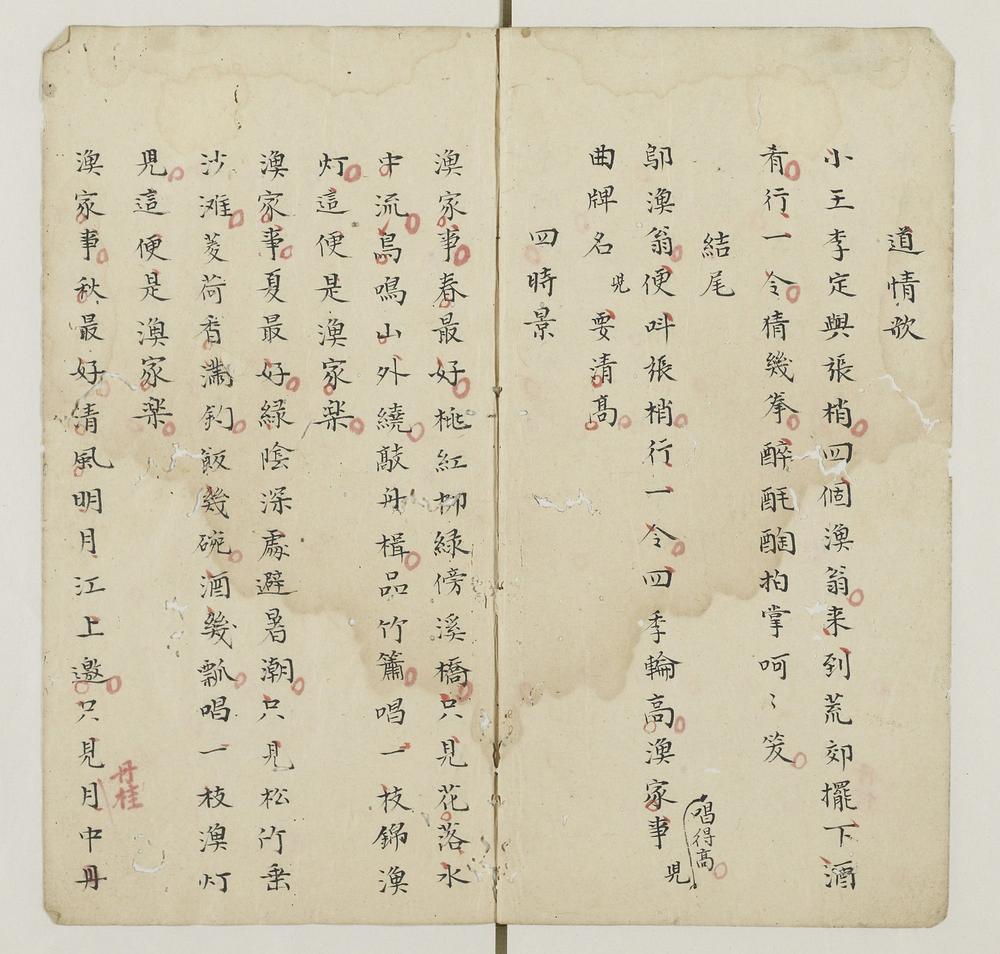 道情歌
小王李定與張梢四個漁翁来到荒郊擺下酒
肴行一令猜幾拳醉酕醄拍掌呵〻笑
結尾
邬漁翁便呌張梢行一令四季輪高漁家事児
唱得高
曲牌名児要清髙
四時景
漁家事春最好桃紅柳緑傍溪橋只見花落水
中流鳥鳴山外繞敲舟楫品竹簫唱一枝錦漁
灯這便是漁家楽
漁家事夏最好緑陰深處避暑潮只見松竹垂
沙滩菱荷香满釣飯幾碗酒幾瓢唱一枝漁灯
児這便是漁家楽
漁家事秋最好清風明月江上邀只見月中丹
丹桂